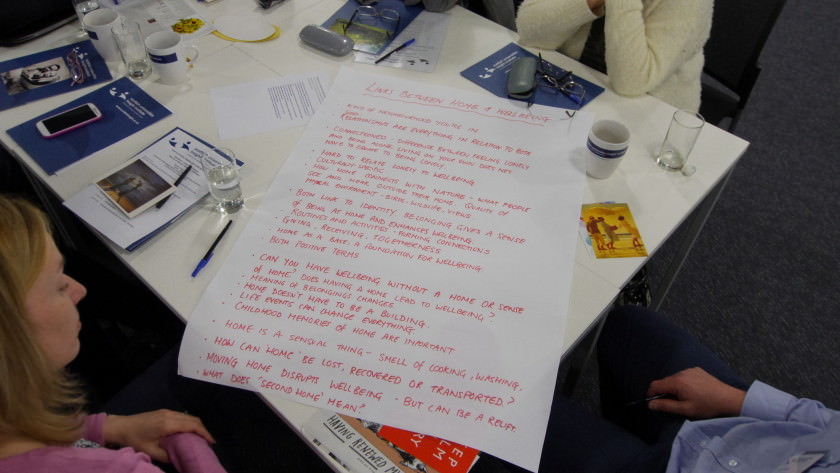 LINKS BETWEEN HOME & WELLBEING
KIND OF NEIGHBOURHOOD YOU'RE IN
RELATIONSHIPS ARE EVERYTHING IN RELATION TO BOTH
CONNECTEDNESS - DIFFERENCE BETWEEN FEELING LONELY
AND BEING ALONE. LIVING ON YOUR OWN DOES NOT
HAVE TO EQUATE TO BEING LONELY
HARD TO RELATE LONELY TO WELLBEING
CULTURALLY SPECIFIC
HOW HOME CONNECTS WITH NATURE - WHAT PEOPLE
SEE AND HEAR OUTSIDE THEIR HOME. QUALITY OF
PHYSICAL ENVIRONMENT - BIRDS, WILDLIFE, VIEWS.
· BOTH LINK TO IDENTITY BELONGING GIVES A SENSE
OF BEING AT HOME AND ENHANCES WELLBEING.
· ROUTINES AND ACTIVITIES - FORMING CONNECTIONS
· GIVING, RECEIVING, TOGETHERNESS
· HOME AS A BASE, A FOUNDATION FOR WELLBEING
· BOTH POSITIVE TERMS
· CAN YOU HAVE WELLBEING WITHOUT A HOME OR SENSE
OF HOME? DOES HAVING A HOME LEAD TO WELLBEING?
· MEANING OF BELONGINGS CHANGES
· HOME DOESN'T HAVE TO BE A BUILDING.
· LIFE EVENTS CAN CHANGE EVERYTHING.
· CHILDHOOD MEMORIES OF HOME ARE IMPORTANT
· HOME IS A SENSUAL THING - SMELL OF COOKING, WASHING,
· HOW CAN 'HOME' BE LOST, RECOVERED OR TRANSPORTED?
· MOVING HOME DISRUPTS WELLBEING - BUT CAN BE A RELIEF.
· WHAT DOES 'SECOND HOME' MEAN?
HAVING RENEWED